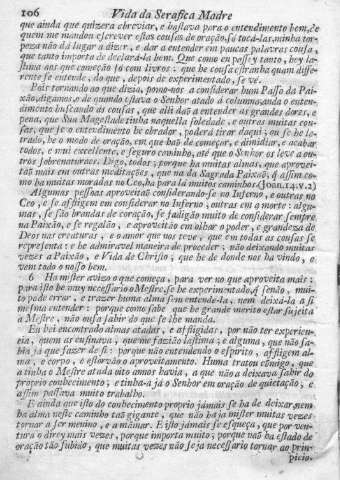 106 Vida da Serafica Madre
que ainda que quizera abreviar, e bastava para o entendimento bem, de
quem me mandou escrever estas cousas de oração, só tocá-las, minha tor-
peza não dá lugar a dizer, e dar a entender em poucas palavras cousa,
que tanto importa de declará-la bem. Que como eu passey tanto, hey las-
tima aos que começão só com livros: que he cousa estranha quam diffe-
rente se entende, do que, depois de experimentado, se vê.
Pois tornando ao que dizia, pomo-nos a considerar hum Passo da Pai-
xão, digamos, o de quando estava o Senhor atado á columna, anda o enten-
dimento buscando as cousas, que alli dá a entender as grandes dores, e
pena, que Sua Magestade tinha naquella soledade, e outras muitas cou-
sas, que se o entendimento he obrador, poderá tirar daqui, ou se he le-
trado, he o modo de oração, em que haõ de começar, e dimidiar, e acabar
todos, e mui excellente, e seguro caminho, até que o Senhor os leve a ou-
tras sobrenaturaes. Digo, todos, porque ha muitas almas, que aprovei-
taõ mais em outras meditações, que na da Sagrada Paixaõ, q̃ assim co-
mo ha muitas moradas no Ceo, ha para lá muitos caminhos. (Joan. 14. v. 2)
Algumas pessoas aproveitaõ considerando-se no Inferno, e outras no
Ceo, e se affligem em considerar no Inferno, outras em a morte: algu-
mas, se são brandas de coração, se fadigão muito de considerar sempre
na Paixão, e se regalão, e aproveitão em olhar o poder, e grandeza de
Deos nas creaturas, e o amor que nos teve, que em todas as cousas se
representa: e he admiravel maneira de proceder: não deixando muitas
vezes a Paixão, e Vida de Christo, que he de donde nos ha vindo, e
vem todo o nosso bem.
6 Ha mister aviso o que começa, para ver no que aproveita mais:
para isto he muy necessario o Mestre, se he experimentado, q̃ senão, mui-
to póde errar, e trazer huma alma sem entende-la, nem deixá-la a si
mesma entender: porque como sabe que he grande merito estar sujeita
a Mestre, não ousa sahir do que se lhe manda.
Eu hei encontrado almas atadas, e affligidas, por não ter experien-
cia, quem as ensinava, que me fazião lastima; e alguma, que não sa-
bia já que fazer de si: porque não entendendo o espirito, affligem al-
ma, e corpo, e estorvão o aproveitamento. Huma tratou comigo, que
a tinha o Mestre atada oito annos havia, a que não a deixava sahir do
proprio conhecimento; e tinha-a já o Senhor em oração de quietação; e
assim passava muito trabalho.
E ainda que isto do conhecimento proprio jámais se ha de deixar, nem
ha alma neste caminho taõ gigante, que não ha já mister muitas vezes
tornar a ser menino, e a mamar. E isto jámais se esqueça, que por ven-
tura o direy mais vezes, porque importa muito; porque naõ ha estado de
oração tão subido, que muitas vezes não seja necessario tornar ao prin-
cipio.